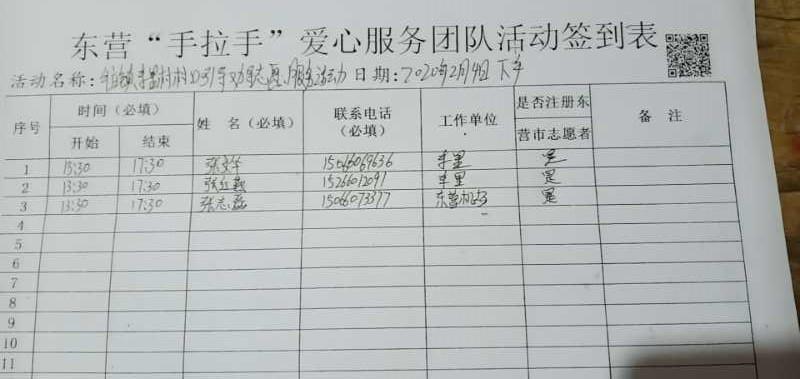 东营“手拉手”爱心服务团队活动签到表
活动名称：李屋村村口引导劝返志愿服务活动 日期：2020年2月9日下午
序号 时间（必填） 姓 名（必填） 联系电话（必填） 工作单位 是否注册东营市志愿者 备 注
开始 结束
1 13:30 17:30 15066069636 李屋 是
2 13:30 17:30 张红燕 15266012091 李屋 是
3 13:30 17:30 张志磊 15066073377 是
4
5
6
7
8
9
10
11